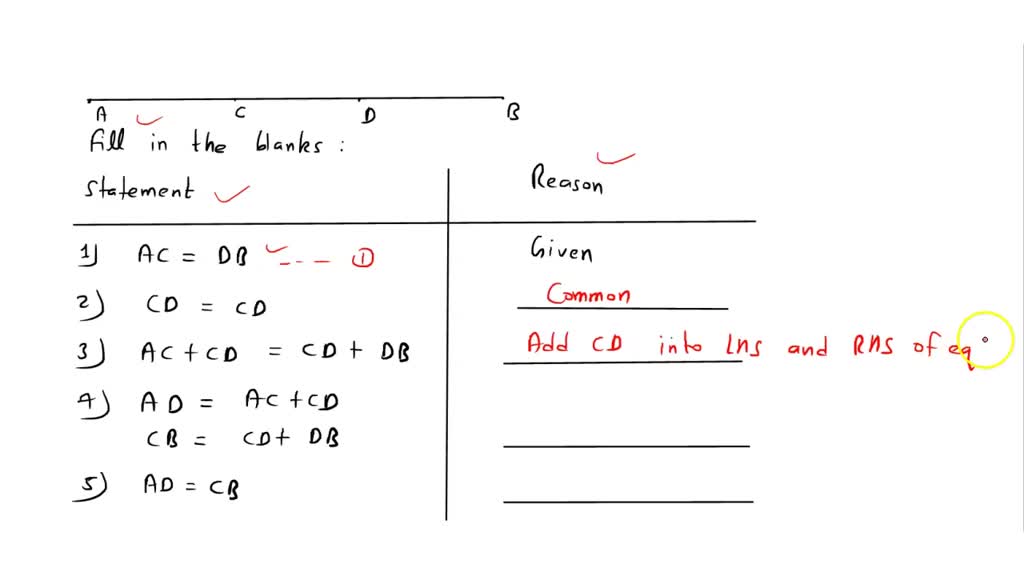 A C D B
fill in the blanks :
Statement Reason
1) AC = DB --- ① Given
2) CD = CD Common
3) AC + CD = CD + DB Add CD into LHS and RHS of eq
4) AD = AC + CD
CB = CD + DB
5) AD = CB